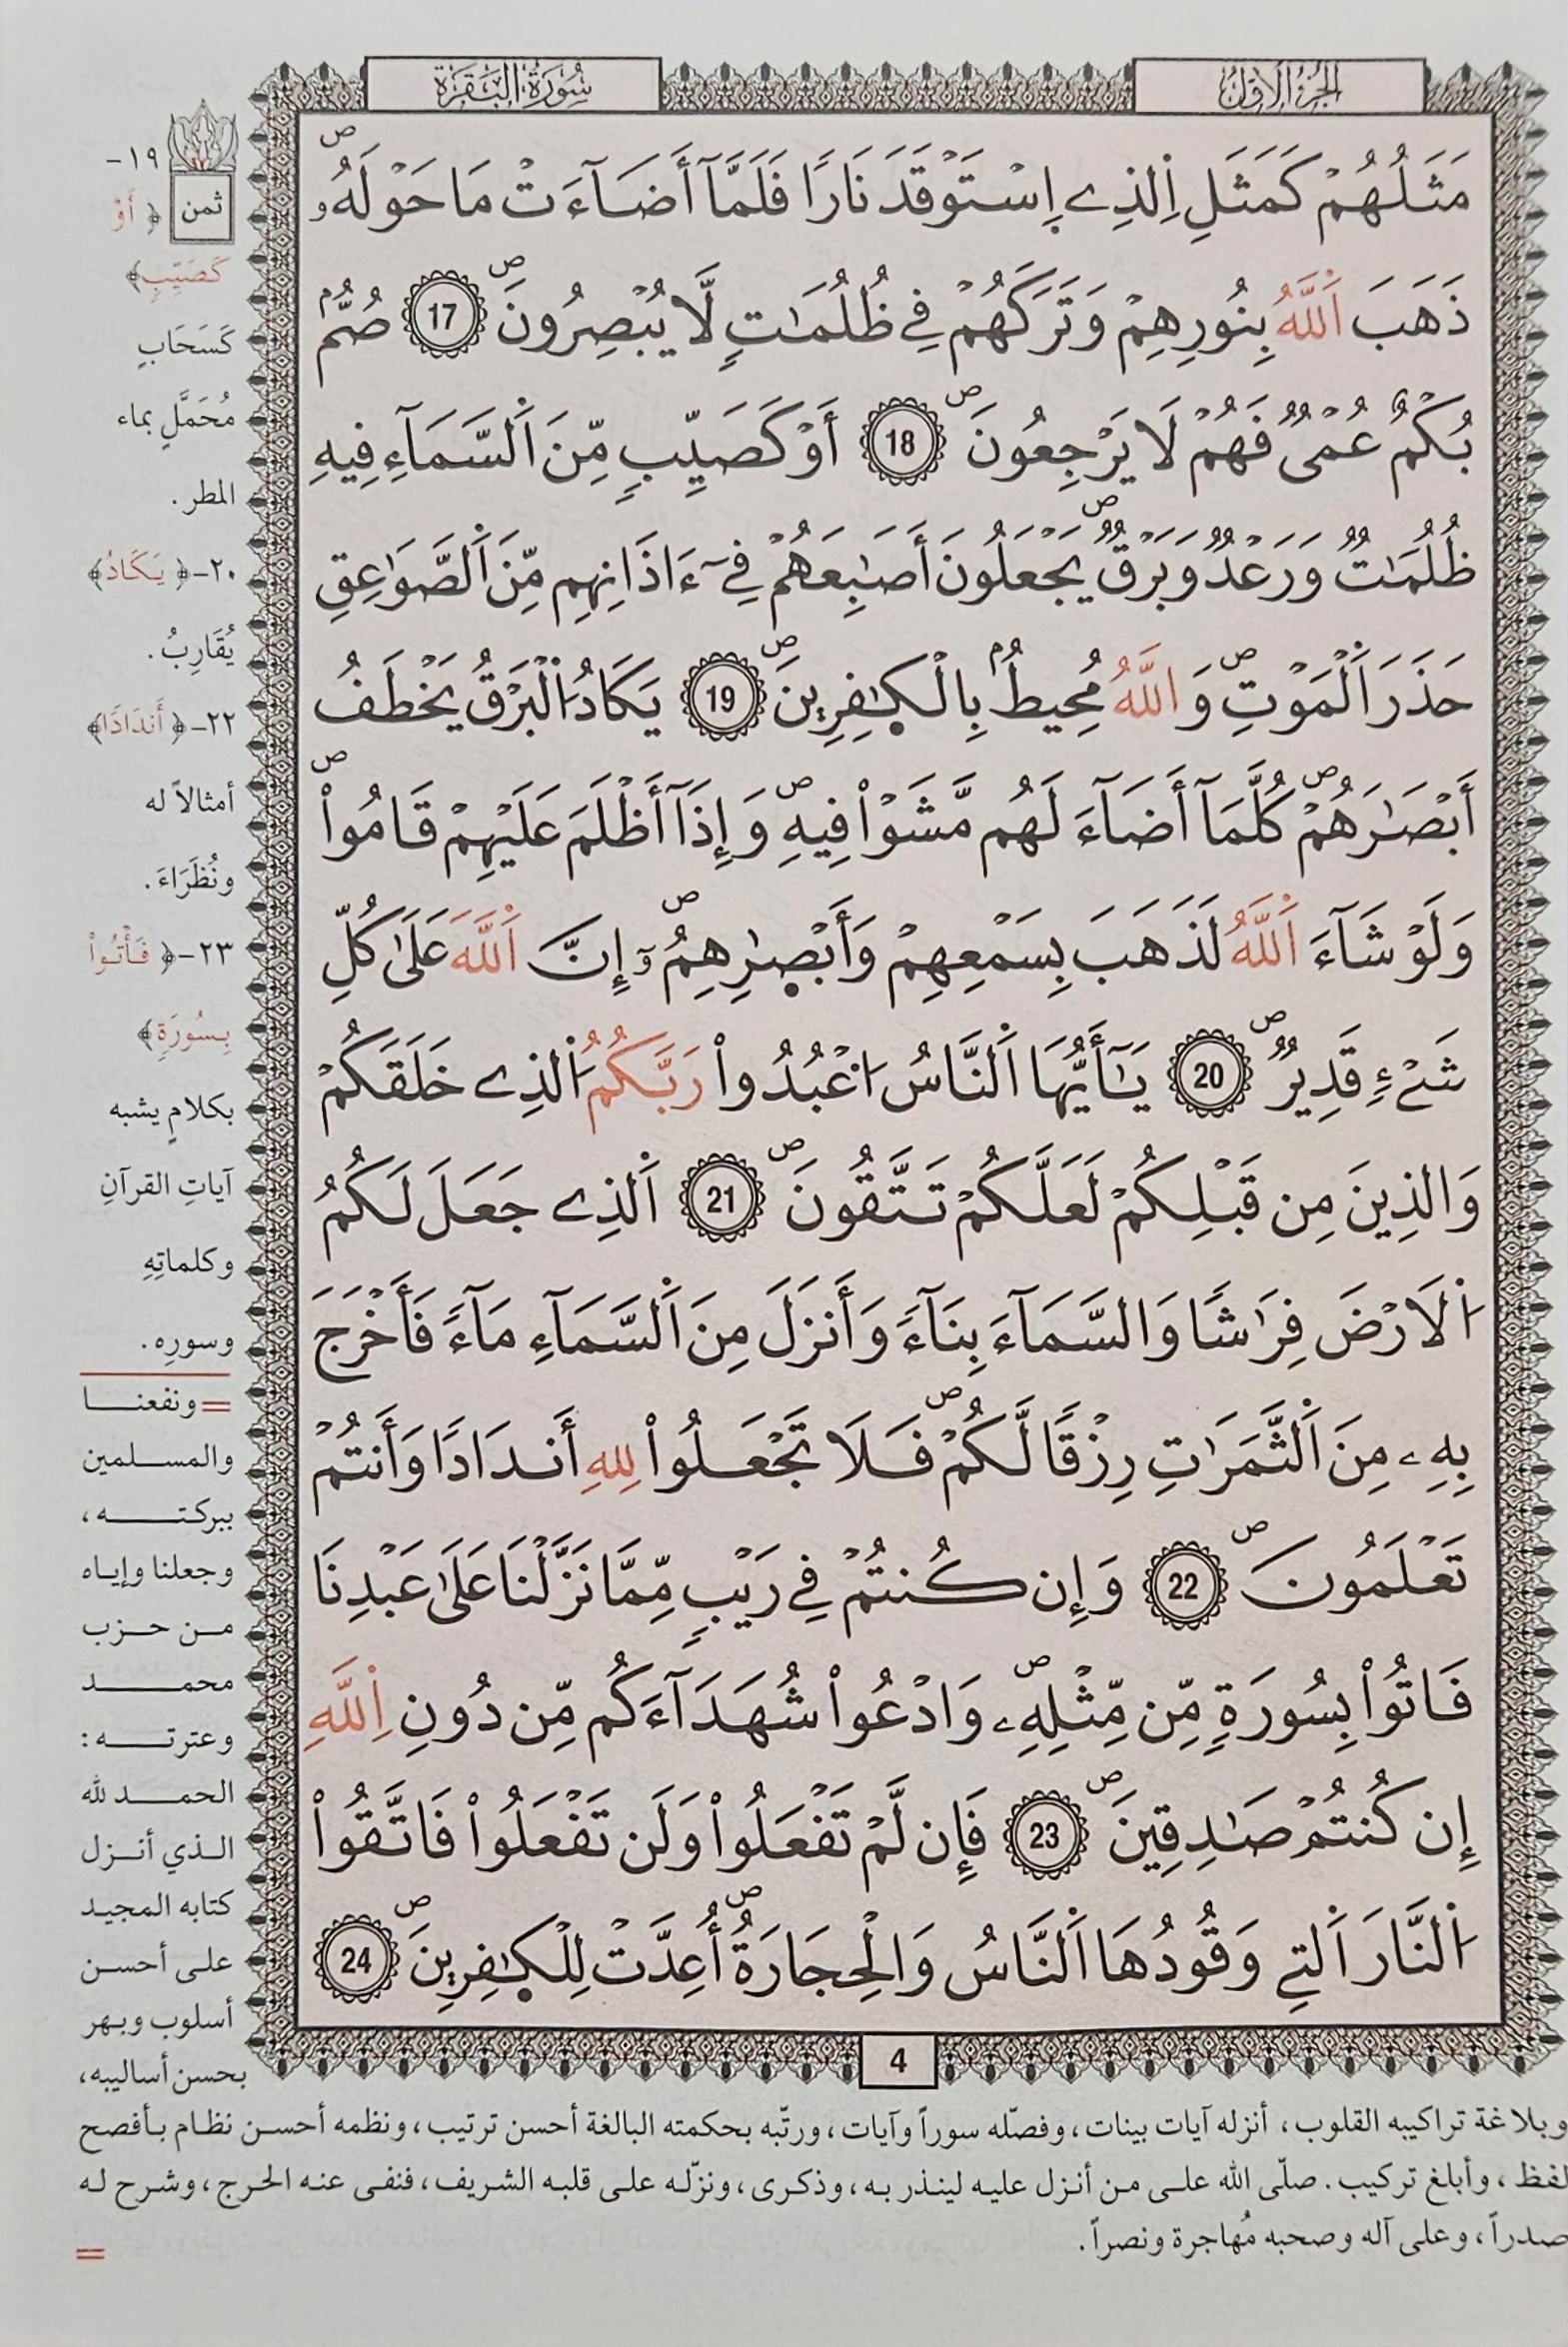 الجزء الأول
سورة البقرة
مَثَلُهُمْ كَمَثَلِ اِ۬لذِے اِ۪سْتَوْقَدَ نَارًا فَلَمَّآ أَضَآءَتْ مَا حَوْلَهُۥ ص
ذَهَبَ اَ۬للَّهُ بِنُورِهِمْ وَتَرَكَهُمْ فِے ظُلُمَٰتٍ لَّا يُبْصِرُونَ ص 17 صُمُّۢ
بُكْمٌ عُمْىٌ فَهُمْ لَا يَرْجِعُونَ ص 18 أَوْ كَصَيِّبٍ مِّنَ اَ۬لسَّمَآءِ فِيهِ
ظُلُمَٰتٌ وَرَعْدٌ وَبَرْقٌ ص يَجْعَلُونَ أَصَٰبِعَهُمْ فِےٓ ءَاذَانِهِم مِّنَ اَ۬لصَّوَٰعِقِ
حَذَرَ اَ۬لْمَوْتِ ص وَاللَّهُ مُحِيطُۢ بِالْكٰ۪فِرِينَ ص 19 يَكَادُ اُ۬لْبَرْقُ يَخْطَفُ
أَبْصَٰرَهُمْ ص كُلَّمَآ أَضَآءَ لَهُم مَّشَوْاْ فِيهِ ص وَإِذَآ أَظْلَمَ عَلَيْهِمْ قَامُواْ ص
وَلَوْ شَآءَ اَ۬للَّهُ لَذَهَبَ بِسَمْعِهِمْ وَأَبْصٰ۪رِهِمُۥٓ ص إِنَّ اَ۬للَّهَ عَلَىٰ كُلِّ
شَےْءٍ قَدِيرٌ ص 20 يَٰٓأَيُّهَا اَ۬لنَّاسُ اُ۟عْبُدُواْ رَبَّكُمُ اُ۬لذِے خَلَقَكُمْ
وَالذِينَ مِن قَبْلِكُمْ لَعَلَّكُمْ تَتَّقُونَ ص 21 اَ۬لذِے جَعَلَ لَكُمُ
اُ۬لَارْضَ فِرَٰشًا وَالسَّمَآءَ بِنَآءً وَأَنزَلَ مِنَ اَ۬لسَّمَآءِ مَآءً فَأَخْرَجَ
بِهِۦ مِنَ اَ۬لثَّمَرَٰتِ رِزْقًا لَّكُمْ ص فَلَا تَجْعَلُواْ لِلهِ أَندَادًا وَأَنتُمْ
تَعْلَمُونَ ص 22 وَإِن كُنتُمْ فِے رَيْبٍ مِّمَّا نَزَّلْنَا عَلَىٰ عَبْدِنَا
فَاتُواْ بِسُورَةٍ مِّن مِّثْلِهِۦ ص وَادْعُواْ شُهَدَآءَكُم مِّن دُونِ اِ۬للَّهِ
إِن كُنتُمْ صَٰدِقِينَ ص 23 فَإِن لَّمْ تَفْعَلُواْ وَلَن تَفْعَلُواْ فَاتَّقُواْ
اُ۬لنَّارَ اَ۬لتِے وَقُودُهَا اَ۬لنَّاسُ وَالْحِجَارَةُ ص أُعِدَّتْ لِلْكٰ۪فِرِينَ ص 24
ثمن
١٩-
﴿ أَوْ
كَصَيِّبٍ﴾
كَسَحَابٍ
مُحَمَّلٍ بماء
المطر.
٢٠-﴿ يَكَادُ﴾
يُقَارِبُ.
٢٢-﴿ أَندَادًا﴾
أمثالاً له
ونُظَرَاءَ.
٢٣-﴿ فَأْتُواْ
بِسُورَةٍ﴾
بكلامٍ يشبه
آياتِ القرآنِ
وكلماتِهِ
وسورِه.
= ونفعنا
والمسلمين
ببركته،
وجعلنا وإياه
من حزب
محمد
وعترته:
الحمد لله
الذي أنزل
كتابه المجيد
على أحسن
أسلوب وبهر
بحسن أساليبه،
4
وبلاغة تراكيبه القلوب، أنزله آيات بينات، وفصّله سوراً وآيات، ورتّبه بحكمته البالغة أحسن ترتيب، ونظمه أحسن نظام بأفصح
لفظ، وأبلغ تركيب. صلّى الله على من أنزل عليه لينذر به، وذكرى، ونزّله على قلبه الشريف، فنفى عنه الحرج، وشرح له
صدراً، وعلى آله وصحبه مُهاجرة ونصراً.
=